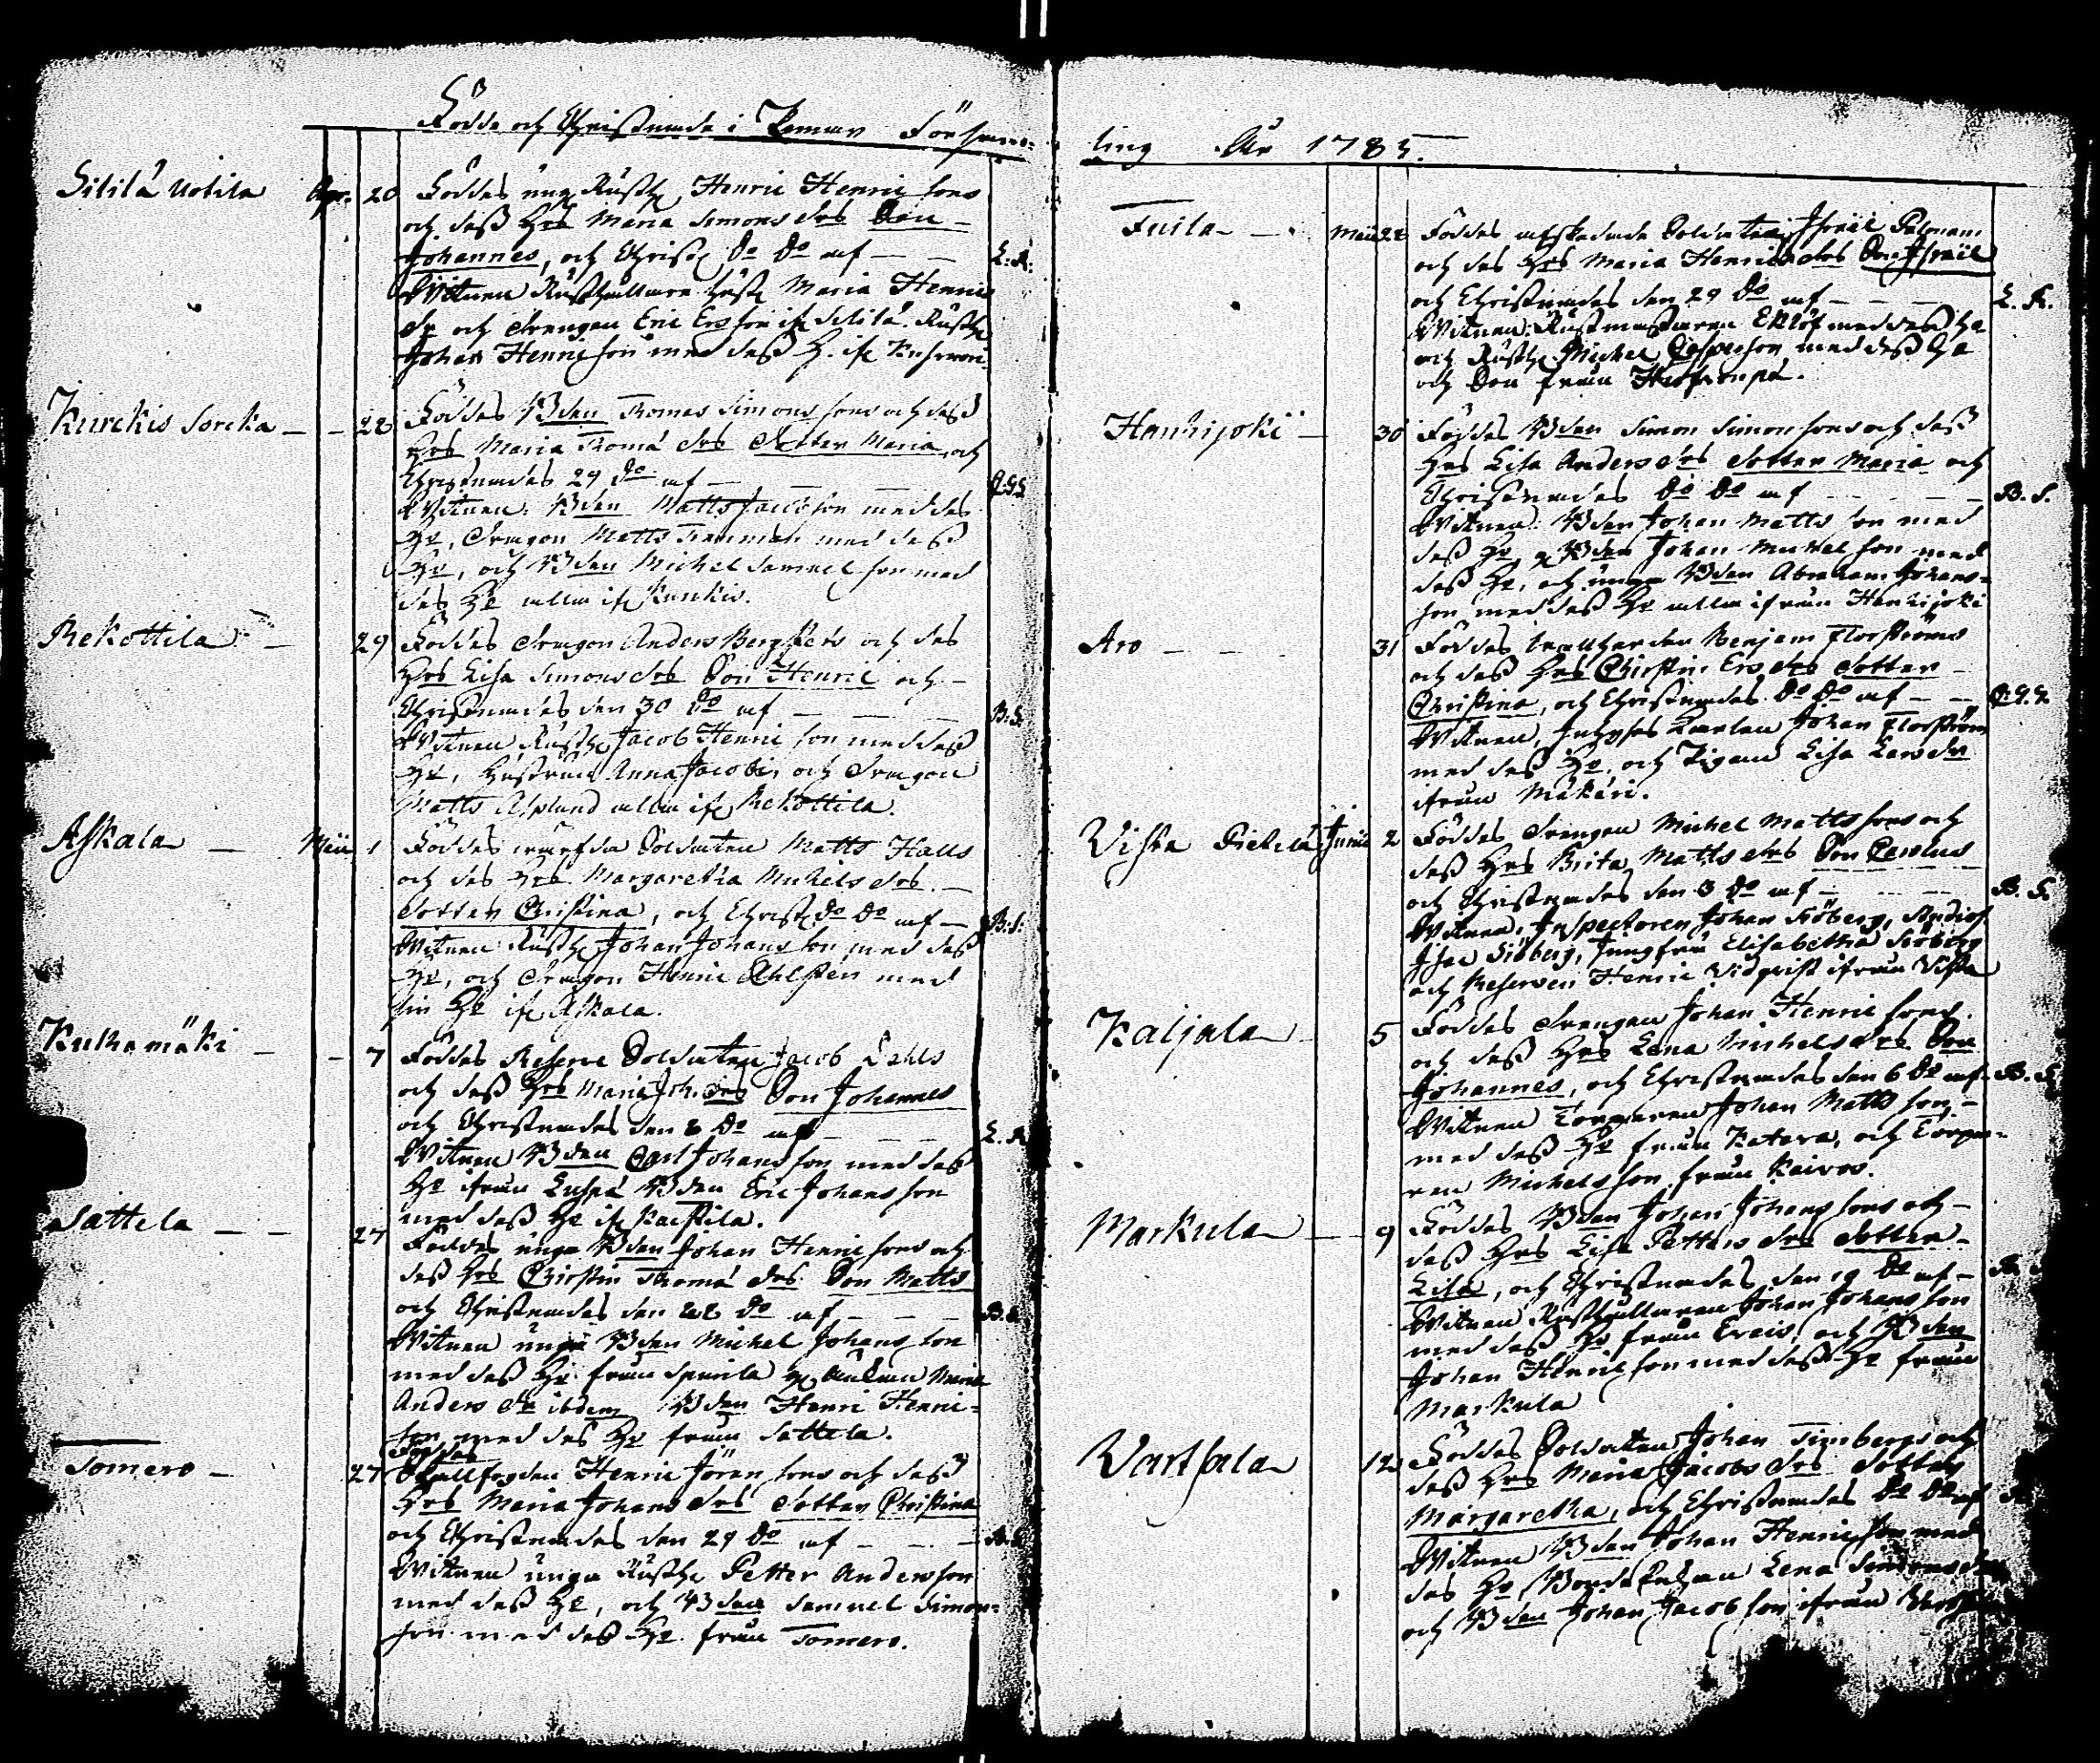 Födde och Christnade i Pemar Församling År 1785.
Sitilä Uotila Apr. 20 Föddes unga Rusth Henric Henric sons
och dess Hrs Maria Simons drs Son
Johannes, och Christ do do af — — L. K.
Witnen Rusthållare hust Maria Henrics
dr och Drengen Eric Ersson if Sitilä. Rusth
Johan Henricson med dess H. if
Kurckis Sorcka — 22 Föddes Bden Thomas Simons sons och dess
Hrs Maria Thomæ drs Dotter Maria, och
Christnades 29 do af — — —
Witnen. Bden Matts Jacobson med des
Hu, Dragon Matts med dess
Hu, och Bden Michel Samuelson med
des Hu alla if Kurckis.
Rekottila — 29 Föddes Dragon Anders Bergstens och des
Hrs Lisa Simons drs Son Henric och —
Christnades den 30 do af — — — B. S.
Witnen Rusth Jacob Henricson med dess
Hu, Hustrun Anna Jacobi, och Dragon
Matts Asplund alla if Rekottila.
Askala — Maii 1 Föddes Soldaten Matts Halls
och des Hrs Margaretha Michels drs —
Dotter Christina, och Christ do do af — B. S.
Witnen Rusth Johan Johansson med dess
Hu, och Dragon Henric Ahlsten med
sin Hu if Askala.
Kukamäki — 7 Föddes Reserve Soldaten Jacob Dahls
och dess Hrs Maria Joh. drs Son Johannes
och Christnades den 8 do af — — — L. K.
Witnen Bden Carl Johansson med dess
Hu ifrån Bden Eric Johansson
med dess Hu if
Sattela — — 27 Föddes unga Bden Johan Henricsons och
dess Hrs Christin Thomæ drs Son Matts
och Christnades den 28 do af — — — B. S.
Witnen unga Bden Michel Johansson
med dess Hu från Spurila Maria
Anders dr ibdem Bden Henric Henric=
son med des Hu från Sattela.
Somero — 27 Föddes Henric Jörensons och dess
Hrs Maria Johans drs Dotter Christina
och Christnades den 29 do af — — — B. S.
Witnen unga Rusth Petter Andersson
med dess Hu, och Bden Samuel Simon=
son med des Hu från Somero.
Tuila — Maii 28 Föddes afskedade Soldaten Israel Palmans
och des Hrs Maria Henrics drs Son Israel
och Christnades den 29 do af — — — L. K.
Witnen: Rustmästaren Eklöf med dess Hu
och Rusth Michel med dess Hu
och Son från
Hanhijoki — 30 Föddes Bden Simon Simonsons och dess
Hrs Lisa Anders drs Dotter Maria och
Christnades do do af — — — B. S.
Witnen: Bden Johan Mattsson med
dess Hu, Bden Johan Michelson med
dess Hu, och unga Bden Abraham Johans=
son med dess Hu alla ifrån Hanhijoki
Aro — — 31 Föddes Benjam Florströms
och dess Hrs Christin Ers drs Dotter —
Christina, och Christnades do do af — —
Witnen, Inhyses Karlen Johan Florström
med dess Hu, och Pigan Lisa Lars dr
ifrån Mäkäri.
Vista Pietilä Junii 2 Föddes Drengen Michel Matts sons och
dess Hrs Brita Matts drs Son Carolus
och Christnades den 3 do af — — — B. S.
Witnen, Inspectoren Johan Siöberg, Studios.
Isac Siöberg, Jungfru Elisabetha Siöberg
och Reserven Henric Vidqvist ifrån Vista
Kaljala — 5 Föddes Drengen Johan Henric sons
och dess Hrs Lena Michels drs Son
Johannes, och Christnades den 6 do af B. S.
Witnen Torparen Johan Mattsson —
med dess Hu från Katara, och Torpa=
ren Michelsson från Kaivos.
Markula — 9 Föddes Bden Johan Johans sons och —
dess Hrs Lisa Petters drs Dotter —
Lisa, och Christnades den 19 do af —
Witnen Rusthållaren Johan Johansson
med dess Hu från och Bden
Johan Henricson med dess Hu från
Markula
Wartsala 12 Föddes Soldaten Johan Timbergs och
dess Hrs Maria Jacobs drs Dotter
Margaretha, och Christnades do do af
Witnen Bden Johan Henricson med
des Hu Bonde Enkan Lena Simons dr
och Bden Johan Jacobson ifrån